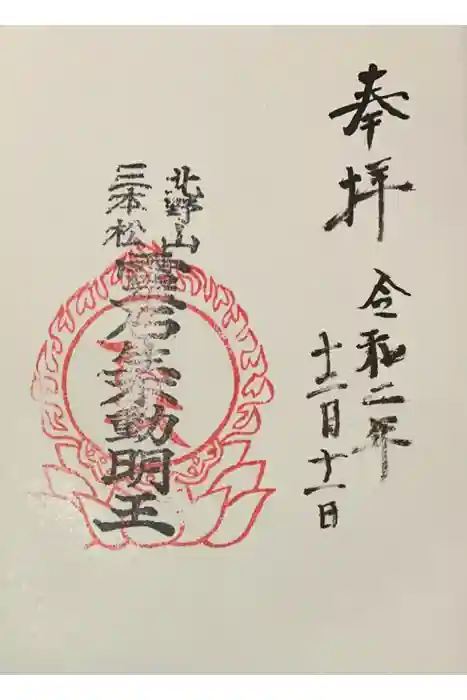 奉拝
令和二年
十二月十一日
北野山
三本松
霊石生不動明王